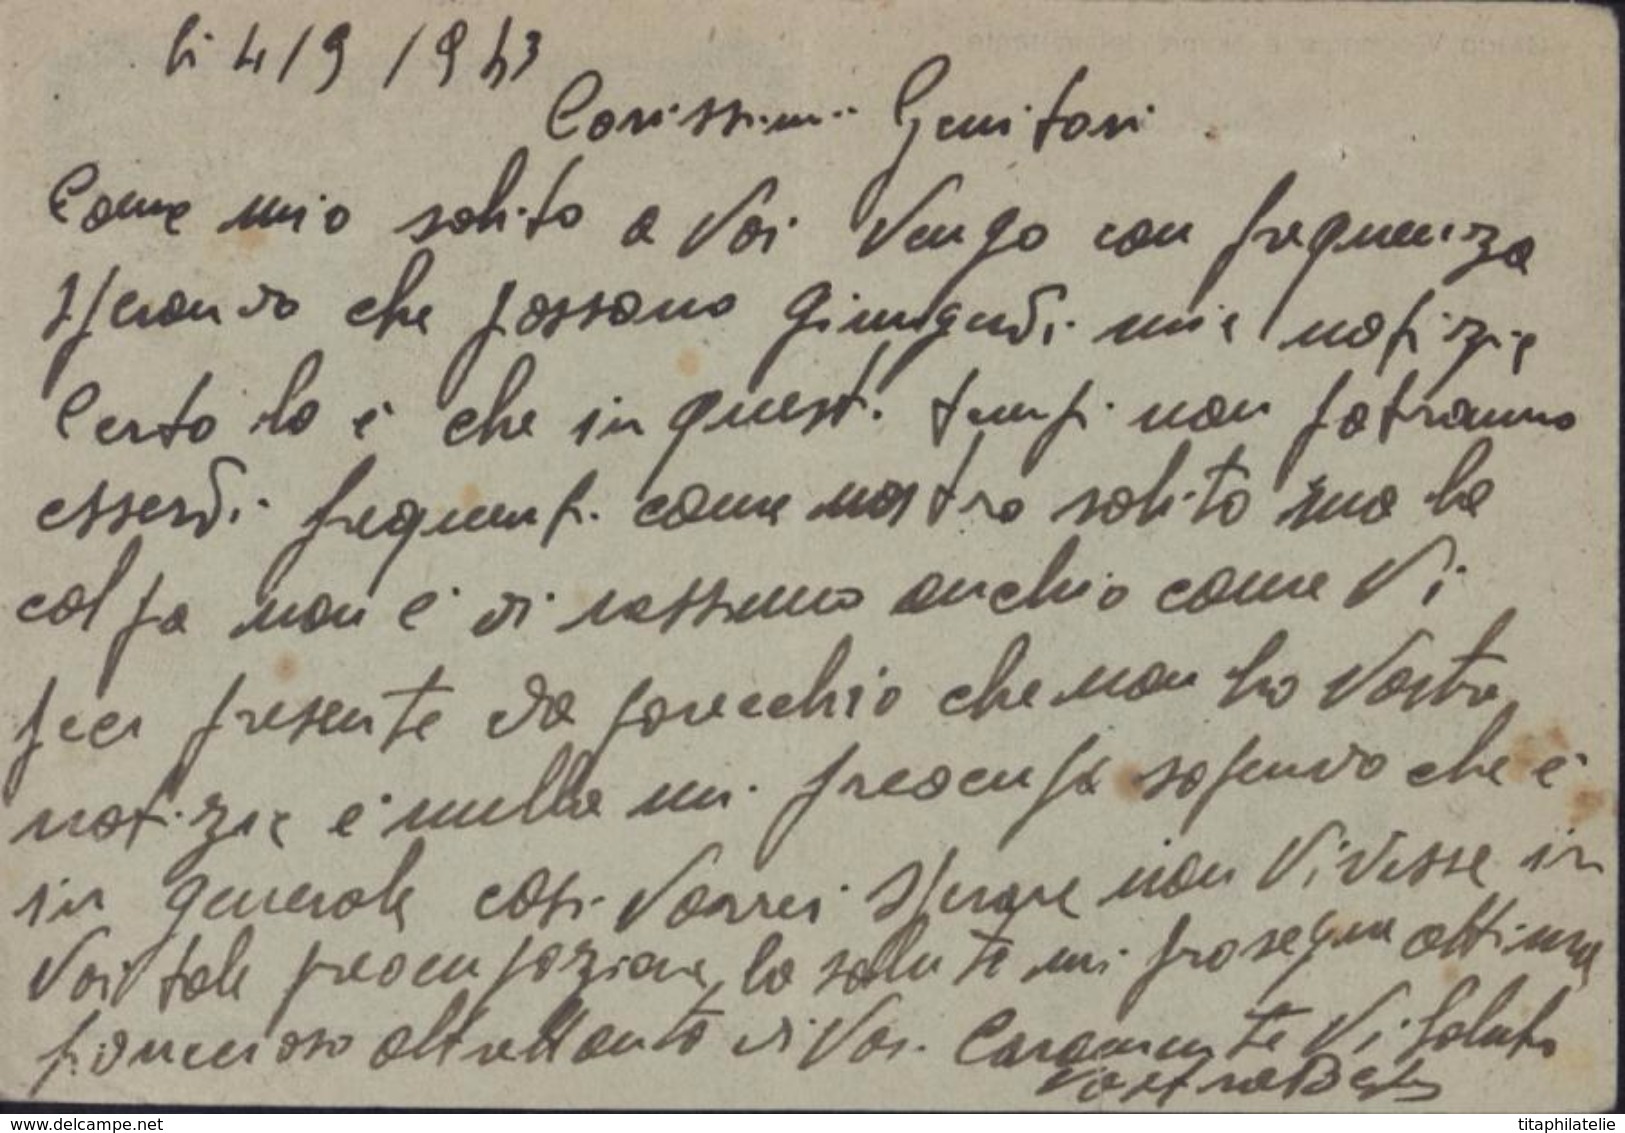 li 4/9/943
Carissimi Genitori
Come mio solito a Voi Vengo con frequenza
sperando che possano giungerdi mie notizie
Certo lo è che in questi tempi non potranno
esserdi frequenti come nostro solito ma la
colpa non è di nessuno anchio come Vi
feci presente da parecchio che non ho Vostre
notizie e nulla mi preocupa sapendo che è
in generale così Vorrei sperare non Vivesse in
Voi tale preocupazione, la salute mi prosegue ottima
altrettanto di Voi. Caramente Vi Saluto
vostro
www.delcampe.net titaphilatelie